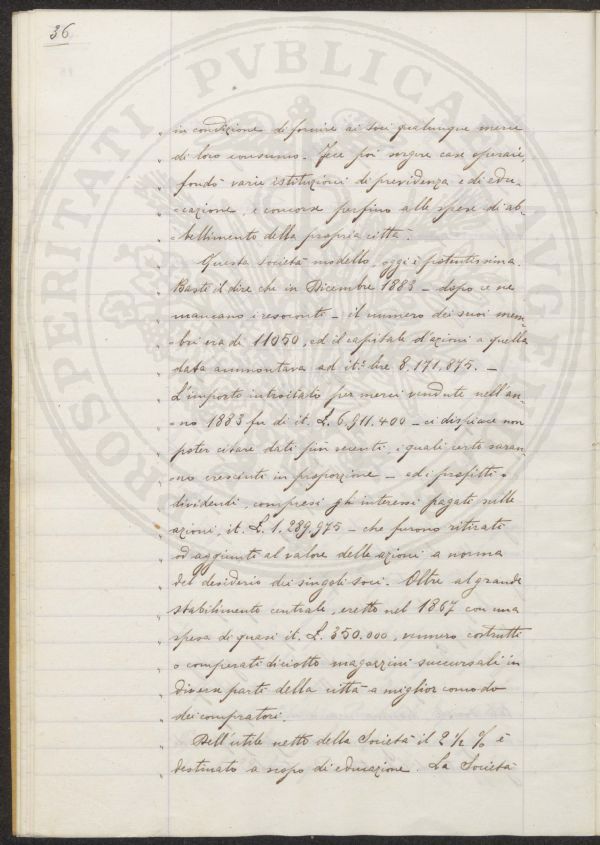 36
PROSPERITATI PVBLICAE AVGENDAE
in condizione di fornire ai soci qualunque merce
di loro consumo. Fece poi sorgere case operaie,
fondò varie istituzioni di previdenza e di edu-
cazione, e concorse perfino alle spese di ab-
bellimento della propria città.
Questa società modello, oggi è potentissima.
Basti il dire che in Dicembre 1883 – dopo ce ne
mancano i resoconti – il numero dei suoi mem-
bri era di 11050, ed il capitale d'azioni a quella
data ammontava ad it.e lire 8.171.875. –
L'importo introitato per merci vendute nell'an-
no 1883 fu di it. L. 6.911.400 – ci dispiace non
poter citare dati più recenti, i quali certo saran-
no cresciuti in proporzione – ed i profitti o
dividendi, compresi gli interessi pagati sulle
azioni, it. L. 1.289.975 – che furono ritirati
od aggiunti al valore delle azioni a norma
del desiderio dei singoli soci. Oltre al grande
stabilimento centrale, eretto nel 1867 con una
spesa di quasi it. L. 350.000, vennero costrutti
o comperati diciotto magazzini succursali in
diverse parti della città a miglior comodo
dei compratori.
Dell'utile netto della Società il 2 1/2 % è
destinato a scopo di educazione. La Società